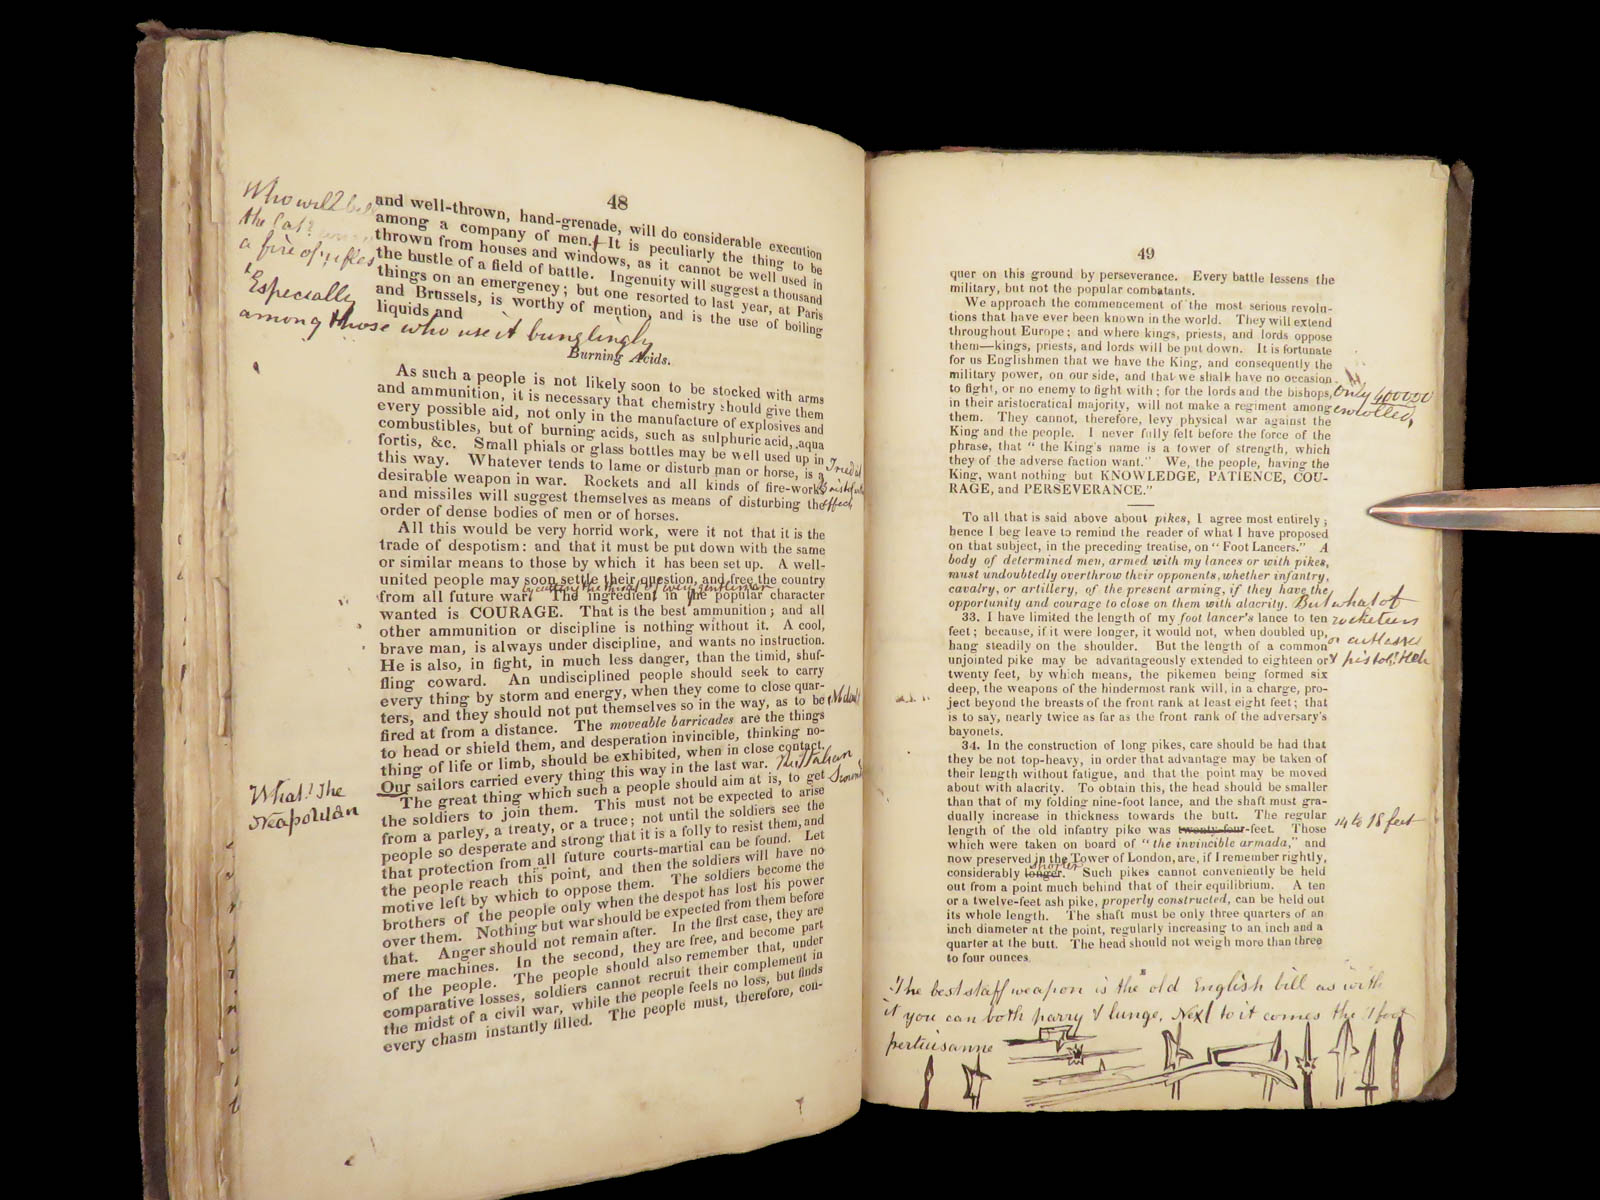 48
and well-thrown, hand-grenade, will do considerable execution
among a company of men.† It is peculiarly the thing to be
thrown from houses and windows, as it cannot be well used in
the bustle of a field of battle. Ingenuity will suggest a thousand
things on an emergency; but one resorted to last year, at Paris
and Brussels, is worthy of mention, and is the use of boiling
liquids and
Who will bell
the Cat?
a fire of rifles
Especially
among those who use it bunglingly
Burning Acids.
As such a people is not likely soon to be stocked with arms
and ammunition, it is necessary that chemistry should give them
every possible aid, not only in the manufacture of explosives and
combustibles, but of burning acids, such as sulphuric acid, aqua
fortis, &c. Small phials or glass bottles may be well used up in
this way. Whatever tends to lame or disturb man or horse, is a
desirable weapon in war. Rockets and all kinds of fire-works
and missiles will suggest themselves as means of disturbing the
order of dense bodies of men or of horses.
effect
All this would be very horrid work, were it not that it is the
trade of despotism: and that it must be put down with the same
or similar means to those by which it has been set up. A well-
united people may soon settle their question, and free the country
by cutting the throat of every gentleman
from all future war. The ingredient in the popular character
wanted is COURAGE. That is the best ammunition; and all
other ammunition or discipline is nothing without it. A cool,
brave man, is always under discipline, and wants no instruction.
He is also, in fight, in much less danger, than the timid, shuf-
fling coward. An undisciplined people should seek to carry
every thing by storm and energy, when they come to close quar-
ters, and they should not put themselves so in the way, as to be
fired at from a distance. The moveable barricades are the things
to head or shield them, and desperation invincible, thinking no-
thing of life or limb, should be exhibited, when in close contact.
Our sailors carried every thing this way in the last war. The Italian
What! The
Neapolitan
The great thing which such a people should aim at is, to get
the soldiers to join them. This must not be expected to arise
from a parley, a treaty, or a truce; not until the soldiers see the
people so desperate and strong that it is a folly to resist them, and
that protection from all future courts-martial can be found. Let
the people reach this point, and then the soldiers will have no
motive left by which to oppose them. The soldiers become the
brothers of the people only when the despot has lost his power
over them. Nothing but war should be expected from them before
that. Anger should not remain after. In the first case, they are
mere machines. In the second, they are free, and become part
of the people. The people should also remember that, under
comparative losses, soldiers cannot recruit their complement in
the midst of a civil war, while the people feels no loss, but finds
every chasm instantly filled. The people must, therefore, con-
49
quer on this ground by perseverance. Every battle lessens the
military, but not the popular combatants.
We approach the commencement of the most serious revolu-
tions that have ever been known in the world. They will extend
throughout Europe; and where kings, priests, and lords oppose
them—kings, priests, and lords will be put down. It is fortunate
for us Englishmen that we have the King, and consequently the
military power, on our side, and that we shall have no occasion
to fight, or no enemy to fight with; for the lords and the bishops,
in their aristocratical majority, will not make a regiment among
them. They cannot, therefore, levy physical war against the
King and the people. I never fully felt before the force of the
phrase, that "the King's name is a tower of strength, which
they of the adverse faction want." We, the people, having the
King, want nothing but KNOWLEDGE, PATIENCE, COU-
RAGE, and PERSEVERANCE."
Only 400000
enrolled,
To all that is said above about pikes, I agree most entirely;
hence I beg leave to remind the reader of what I have proposed
on that subject, in the preceding treatise, on "Foot Lancers." A
body of determined men, armed with my lances or with pikes,
must undoubtedly overthrow their opponents, whether infantry,
cavalry, or artillery, of the present arming, if they have the
opportunity and courage to close on them with alacrity. But what of
rocketeers
or cutlasses
& pistol?
33. I have limited the length of my foot lancer's lance to ten
feet; because, if it were longer, it would not, when doubled up,
hang steadily on the shoulder. But the length of a common
unjointed pike may be advantageously extended to eighteen or
twenty feet, by which means, the pikemen being formed six
deep, the weapons of the hindermost rank will, in a charge, pro-
ject beyond the breasts of the front rank at least eight feet; that
is to say, nearly twice as far as the front rank of the adversary's
bayonets.
34. In the construction of long pikes, care should be had that
they be not top-heavy, in order that advantage may be taken of
their length without fatigue, and that the point may be moved
about with alacrity. To obtain this, the head should be smaller
than that of my folding nine-foot lance, and the shaft must gra-
dually increase in thickness towards the butt. The regular
length of the old infantry pike was twenty-four-feet. Those
14 to 18 feet
which were taken on board of "the invincible armada," and
now preserved in the Tower of London, are, if I remember rightly,
shorter
considerably longer. Such pikes cannot conveniently be held
out from a point much behind that of their equilibrium. A ten
or a twelve-feet ash pike, properly constructed, can be held out
its whole length. The shaft must be only three quarters of an
inch diameter at the point, regularly increasing to an inch and a
quarter at the butt. The head should not weigh more than three
to four ounces.
The best staff weapon is the old English bill as with
it you can both parry & lunge. Next to it comes the 7 foot
pertuisanne